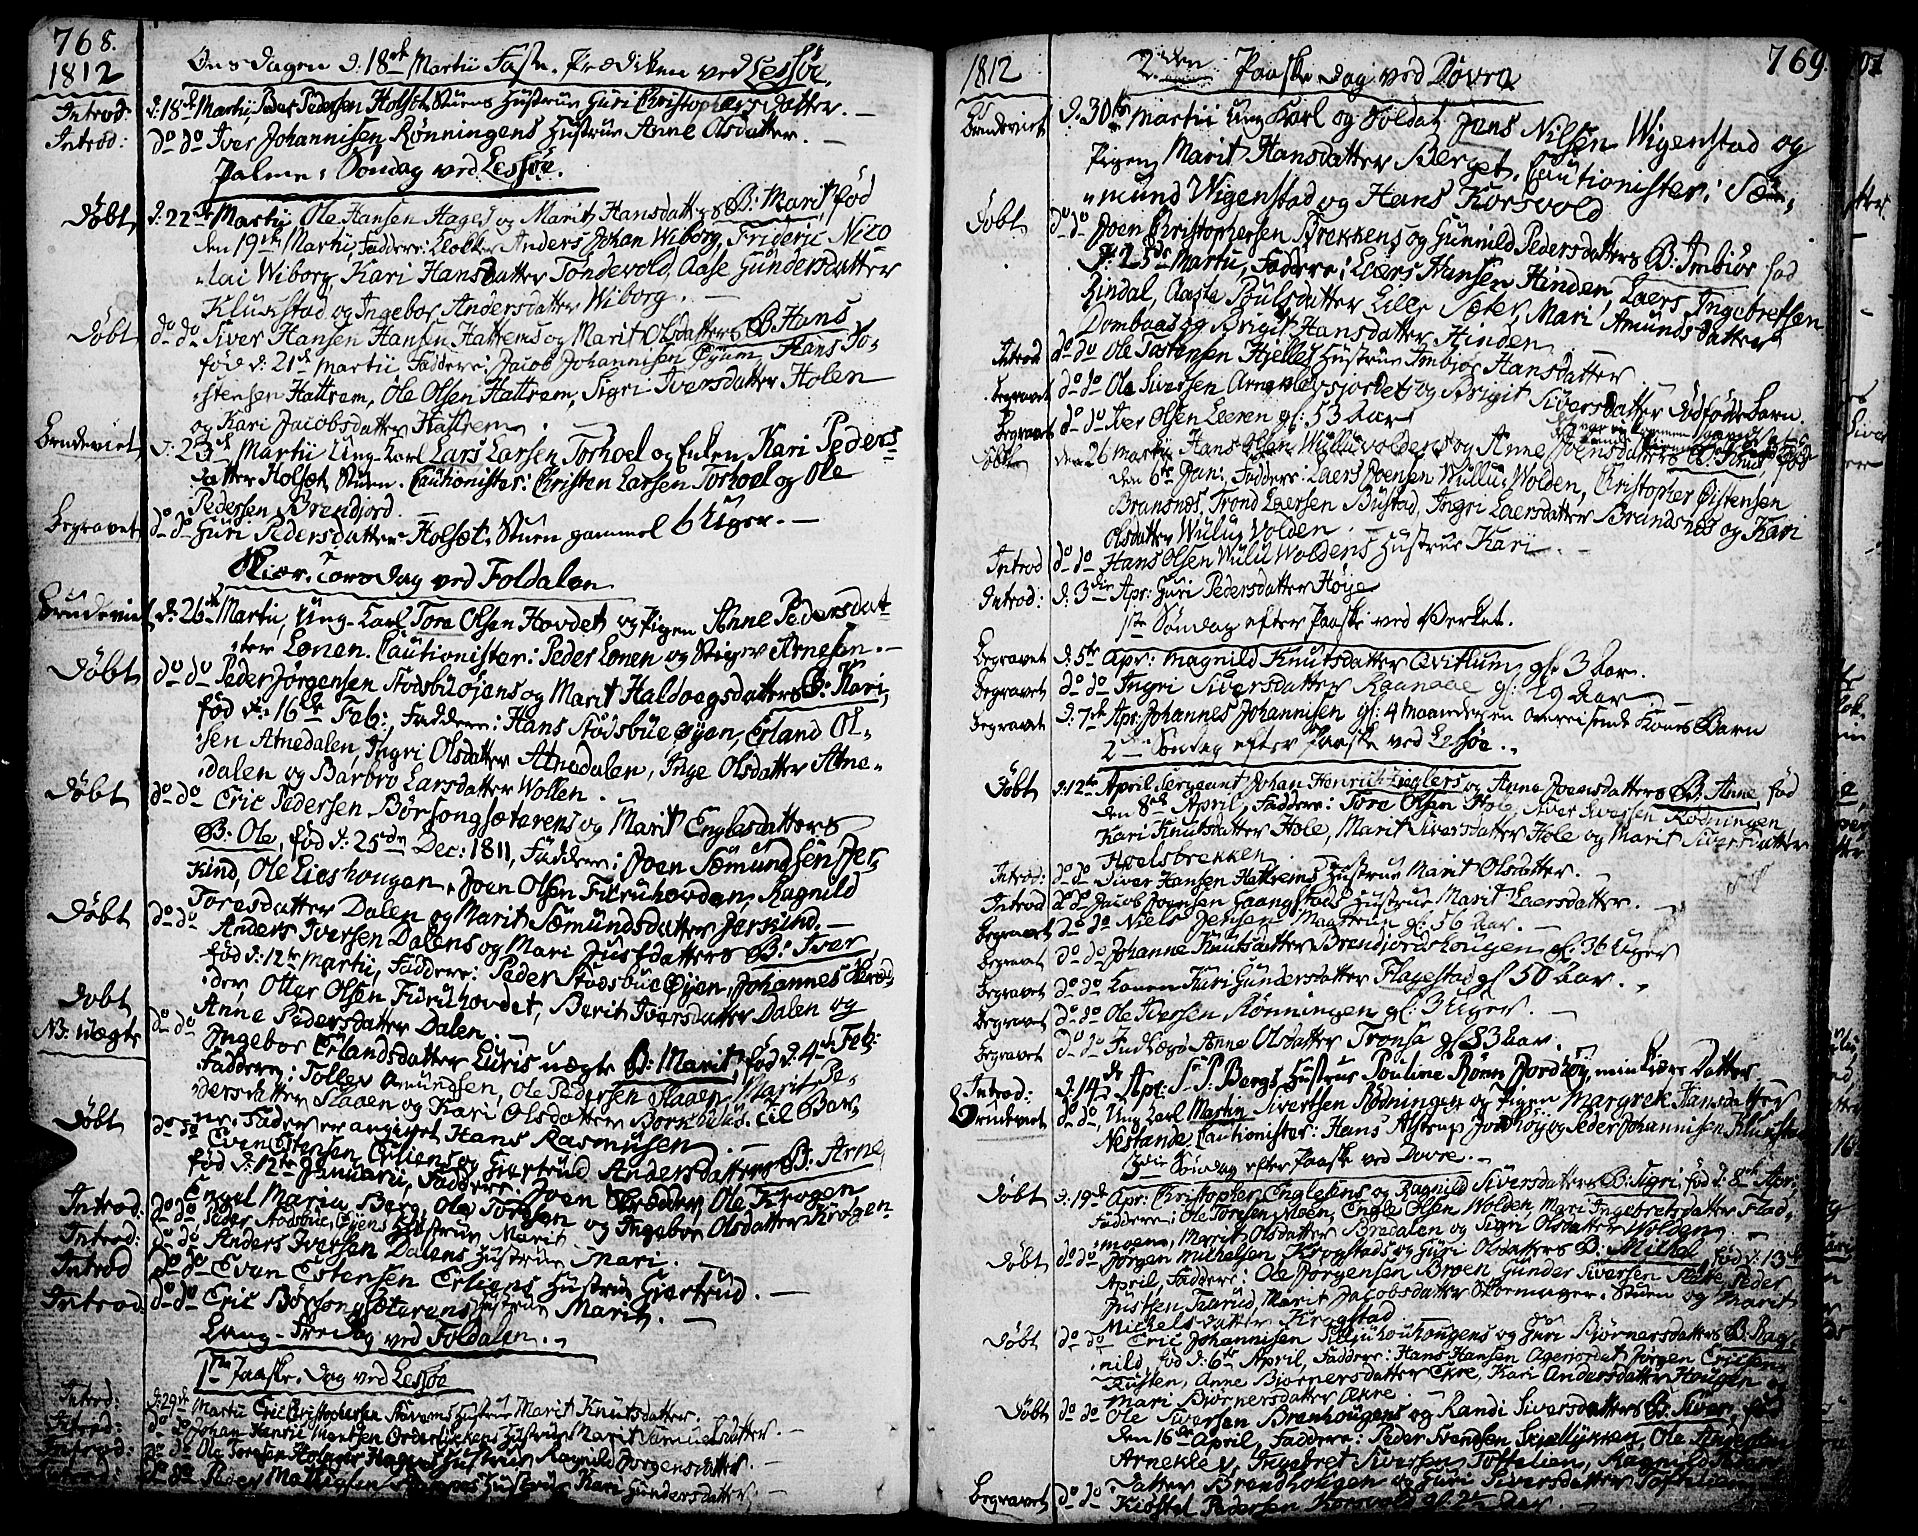 768.
1812
Onsdagen d: 18de Martii Faste-Prædiken ved Lessøe
Introd: d: 18de Martii Peder Pedersen Holset Stuens Hustrue Guri Christophersdatter. —
Introd: do do Iver Johannisen Rønningens Hustrue Anne Olsdatter. —
Palme-Søndag ved Lessøe.
Døbt d: 22de Martii Ole Hansen Hages og Marit Hansdatters B: Marit fød
den 19de Martii, Faddere: Klokker Anders Johan Wiborg, Frideric Nico
lai Wiborg, Kari Hansdatter Tøndevold, Aase Gundersdatter
Klukstad og Ingebor Andersdatter Wiborg. —
Døbt do do Siver Hansen Hansen Hattrems og Marit Olsdatters B: Hans
fød d: 21de Martii Faddere: Jacob Johannisen Øyum, Hans To-
stensen Hattrem, Ole Olsen Hattrem, Sigri Iversdatter Holen
og Kari Jacobsdatter Hattrem. —
Brudeviet d: 23de Martii Ung-Karl Lars Larsen Torhoel og Enken Kari Peders
datter Holset Stuen. Cautionister: Christen Larsen Torhoel og Ole
Pedersen Brendjord.
Begravet do do Guri Pedersdatter Holset-Stuen gammel 6 Uger. —
Skier-Torsdag ved Foldalen
Brudeviet d: 26de Martii, Ung-Karl Tore Olsen Hovdet og Pigen Anne Pedersdat
ter Lonen. Cautionister: Peder Lonen og Stiger Arnesen. —
Døbt do do Peder Jørgensen Stodsbuøjens og Marit Haldvogsdatters B: Kari,
fød d: 16de Feb:, Faddere: Hans Stodsbueøyen, Erland Ol-
sen Atnedalen, Ingri Olsdatter Atnedalen, Inge Olsdatter Atne-
dalen og Barbro Larsdatter Wollen.
Døbt do do Eric Pedersen Børsongsæterens og Marit Englesdatters
B: Ole, fød d: 25de Dec: 1811, Faddere: Joen Sæmundsen Jer-
kind, Ole Eieshougen, Joen Olsen Furuhovden, Ragnild
Toresdatter Dalen og Marit Sæmundsdatter Jerkind. —
Døbt do do Anders Iversen Dalens og Mari Jusfdatters B: Iver
fød d: 12te Martii, Faddere: Peder Stodsbue Øyen, Johannes
der, Otter Olsen Furuhovdet, Berit Iversdatter Dalen og
Anne Pedersdatter Dalen. —
Døbt
N: uægte do do Ingebor Erlandsdatter Luris uægte B: Marit, fød d: 4de Feb:
Faddere: Tollev Amundsen, Ole Pedersen Slaaen, Marit Pe-
dersdatter Slaaen og Kari Olsdatter Borkhus. Til Bar-
ne-Fader er angivet Hans Rasmusen
Døbt do do Even Estensen Erliens og Giertrud Andersdatters B: Arne,
fød d: 12te Januarii, Faddere Joen Ole Krogen
Engel Maria Berg, Ole Toresen og Ingebor Olsdatter Krogen
Introd: do do Peder Stodsbue-Øyens Hustrue Marit
Introd: do do Anders Iversen Dalens Hustrue Mari. —
Introd do do Even Estensen Erliens Hustrue Giertrud. —
Introd do do Eric Børsongsæterens Hustrue Marit. —
Lang-Fredag ved Foldalen. —
1ste Paaske-Dag ved Lessøe
Introd: d: 29de Martii Eric Christophersen Stavems Hustrue Marit Knutsdatter.
Introd: do do Johan Henric Mentzen Hustrue Marit Samuelsdatter. —
Introd: do do Ole Toresen Hages Hustrue Ragnild Jørgensdatter. —
Introd: do do Peder Mathiæsen Hustrue Kari Gundersdatter. —
769.
1812
2den Paaske Dag ved Dovre
Brudeviet d: 30te Martii Ung Karl og Soldat Jens Nilsen Wigenstad og
Pigen Marit Hansdatter Berget. Cautionister: Sæ-
mund Wigenstad og Hans Korsvold
Døbt do do Joen Christophersen Brekkens og Gunnild Pedersdatters B: Imbiør fød
d: 25de Martii, Faddere: Laers Hansen Hinden, Laers Ingebretsen
Lindal, Aaste Poulsdatter Lille Sæter, Mari Amundsdatter
Dombaas og Brigit Hansdatter Hinden
Introd do do Ole Tostensen Hjelles Hustrue Imbiør Hansdatter
Begravet do do Ole Siversen Arneklevsjordet og Brigit Siversdatter dødfødte Barn
Begravet do do Iver Olsen Leeren gl: 53 Aar
Døbt den 26 Martii Hans Olsen Wulluvoldens og Anne Joensdatters B: fød
den 6te Jan: Faddere: Laers Joensen Wullu-Wolden, Christopher Østensen
Bransnes, Trond Laersen Bustad, Ingri Laersdatter Brandsnes og Kari
Olsdatter Wulu Volden.
Introd do do Hans Olsen Wulu Woldens Hustrue Kari. —
Introd: d: 3die Apr: Guri Pedersdatter Høye
1ste Søndag efter Paaske ved Verket.
Begravet d: 5te Apr: Magnild Knutsdatter Qvitlum gl: 3 Aar.
Begravet do do Ingri Siversdatter Raanaae gl: 29 Aar
Begravet d: 7de Apr: Johannes Johannisen gl: 4 Maaneder en omreisende Kones Barn
2den Søndag efter Paaske ved Lessøe. —
Døbt d: 12te April Sergeant Johan Henrich Zieglers og Anne Joensdatters B: Anne, fød
den 8de April, Faddere: Tore Olsen Siver Siversen Rødningen
Kari Knutsdatter Hole, Marit Siversdatter Hole og Marit Siversdatter
Hoelsbrekken
Introd: do do Siver Hansen Hattrems Hustrue Marit Olsdatter. —
Introd do do Jacob Joensen Gaangstads Hustrue Marit Laersdatter. —
Begravet do do Niels Jensen Magerun gl: 56 Aar. —
Begravet do do Johanne Knutsdatter Brendjordshougen gl: 36 Uger
Begravet do do Konen Kari Gundersdatter Flagestad gl 50 Aar. —
Begravet do do Ole Iversen Rønningen gl: 3 Uger. —
Begravet do do Indlægs Anne Olsdatter Tronsa gl 83 Aar. —
Introd: d: 14de Apr: Sr P. Bergs Hustrue Pouline Rønn Jordhøy, min kiære Datter
Brudeviet do do, Ung-Karl Martin Sivertsen Rødningen og Pigen Margrete Hansdatter
Nestande, Cautionister: Hans Alstrup Jordhøy og Peder Johannisen Klukstad
3die Søndag efter Paaske ved Dovre. —
Døbt d: 19de Apr: Christopher Englesens og Ragnild Siversdatters B: Sigri, fød d: 8de Apr:
Faddere: Ole Toresen Moen, Engle Olsen Wolden, Mari Ingebretsdatter Flad-
moen, Marit Olsdatter Bredalen og Sigri Olsdatter Wolden
Døbt do do Jørgen Michelsen Krogstads og Guri Olsdatters B: Michel fød d: 13de
April, Faddere: Ole Jørgensen Broen, Gunder Siversen Peder
Justsen Taarud, Marit Jacobsdatter Skoemager-Stuen og Marit
Michelsdatter Krogstad.
Døbt do do Eric Johannisen og Guri Bjørnersdatters B: Rag-
nild, fød d: 6te April, Faddere: Hans Hansen Agerjordet, Jørgen Ericsen
Rusten, Anne Biørnersdatter Ekre, Kari Andersdatter Hougen og
Mari Biørnersdatter Ekre.
Døbt do do Ole Siversen Brenhougens og Randi Siversdatters B: Siver, fød
den 16de April, Faddere: Peder Svendsen Skiellykken, Ole Andersen
Arneklev, Ingebret Siversen Toftelien, Ragnild
datter Brendhougen og Guri Siversdatter Toftelien
Begravet do do Kiøstel Pedersen Korsvold gl: Aar. —